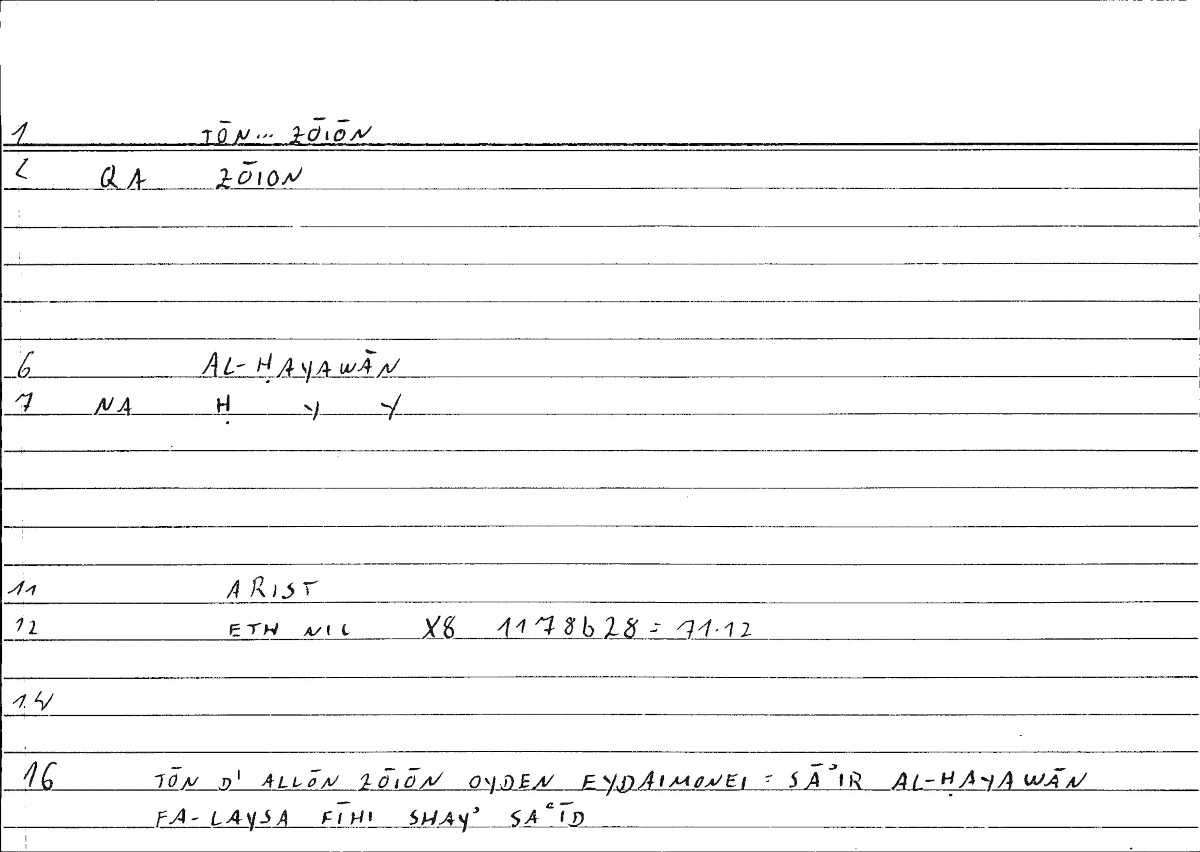 1 TŌN... ZŌIŌN
2 QA ZŌION
6 AL-ḤAYAWĀN
7 NA Ḥ Y Y
11 ARIST
12 ETH NIC X8 1178b28 = 71.12
14
16 TŌN D' ALLŌN ZŌIŌN OYDEN EYDAIMONEI = SĀʾIR AL-ḤAYAWĀN
FA-LAYSA FĪHI SHAYʾ SAʿĪD